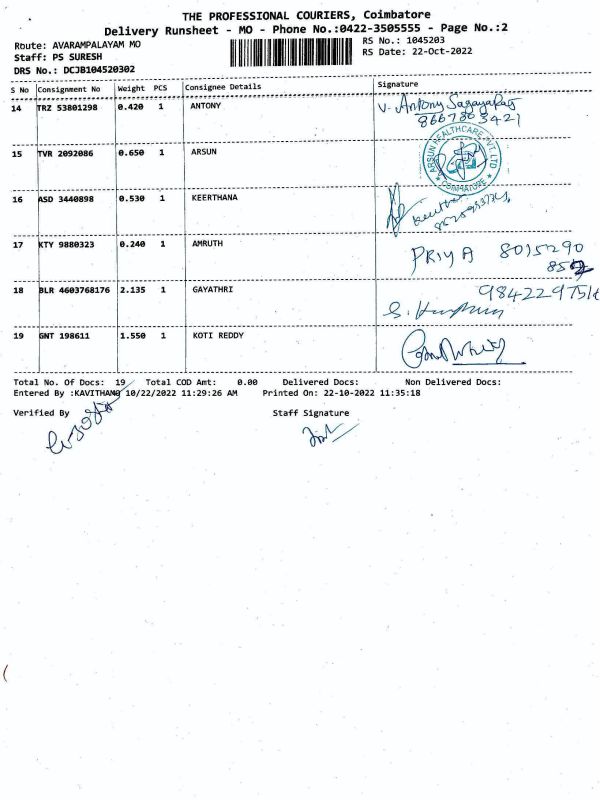 THE PROFESSIONAL COURIERS, Coimbatore
Delivery Runsheet - MO - Phone No.:0422-3505555 - Page No.:2
Route: AVARAMPALAYAM MO RS No.: 1045203
Staff: PS SURESH RS Date: 22-Oct-2022
DRS No.: DCJB104520302
S No Consignment No Weight PCS Consignee Details Signature
14 TRZ 53801298 0.420 1 ANTONY V. Antony Sagayaraj
8667803421
15 TVR 2092086 0.650 1 ARSUN ARSUN HEALTHCARE PVT. LTD
COIMBATORE
16 ASD 3440898 0.530 1 KEERTHANA Keerthana
17 KTY 9880323 0.240 1 AMRUTH PRIYA 8015290
852
18 BLR 4603768176 2.135 1 GAYATHRI 984229751
S.
19 GNT 198611 1.550 1 KOTI REDDY
Total No. Of Docs: 19 Total COD Amt: 0.00 Delivered Docs: Non Delivered Docs:
Entered By :KAVITHAMO 10/22/2022 11:29:26 AM Printed On: 22-10-2022 11:35:18
Verified By Staff Signature